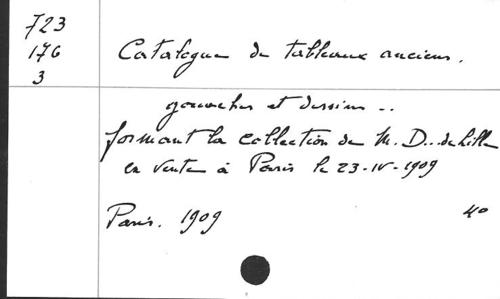 723
176
3
Catalogue de tableaux anciens.
gouaches et dessins ..
formant la collection de M. D... de Lille
en vente à Paris le 23-IV-1909
Paris. 1909
4º